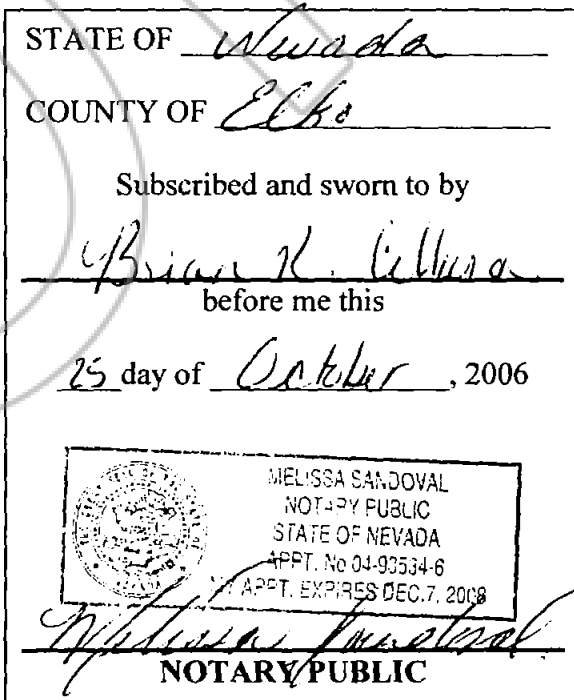 STATE OF Nevada
COUNTY OF Elko
Subscribed and sworn to by
Brian K.
before me this
25 day of October, 2006
MELISSA SANDOVAL
NOTARY PUBLIC
STATE OF NEVADA
APPT. No 04-93534-6
MY APPT. EXPIRES DEC. 7, 2008
Melissa Sandoval
NOTARY PUBLIC